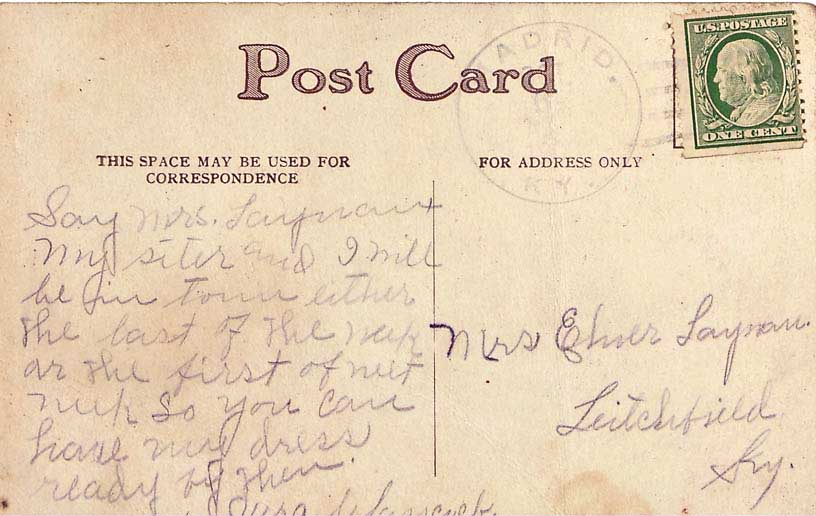 Post Card
MADRID.
KY.
U.S.POSTAGE
ONE CENT
THIS SPACE MAY BE USED FOR
CORRESPONDENCE
FOR ADDRESS ONLY
Say Mrs. Layman
My siter and I will
be in town either
the last of the week
or the first of next
week so you can
have my dress
ready by then.
Mrs Elmer Layman.
Leitchfield
Ky.